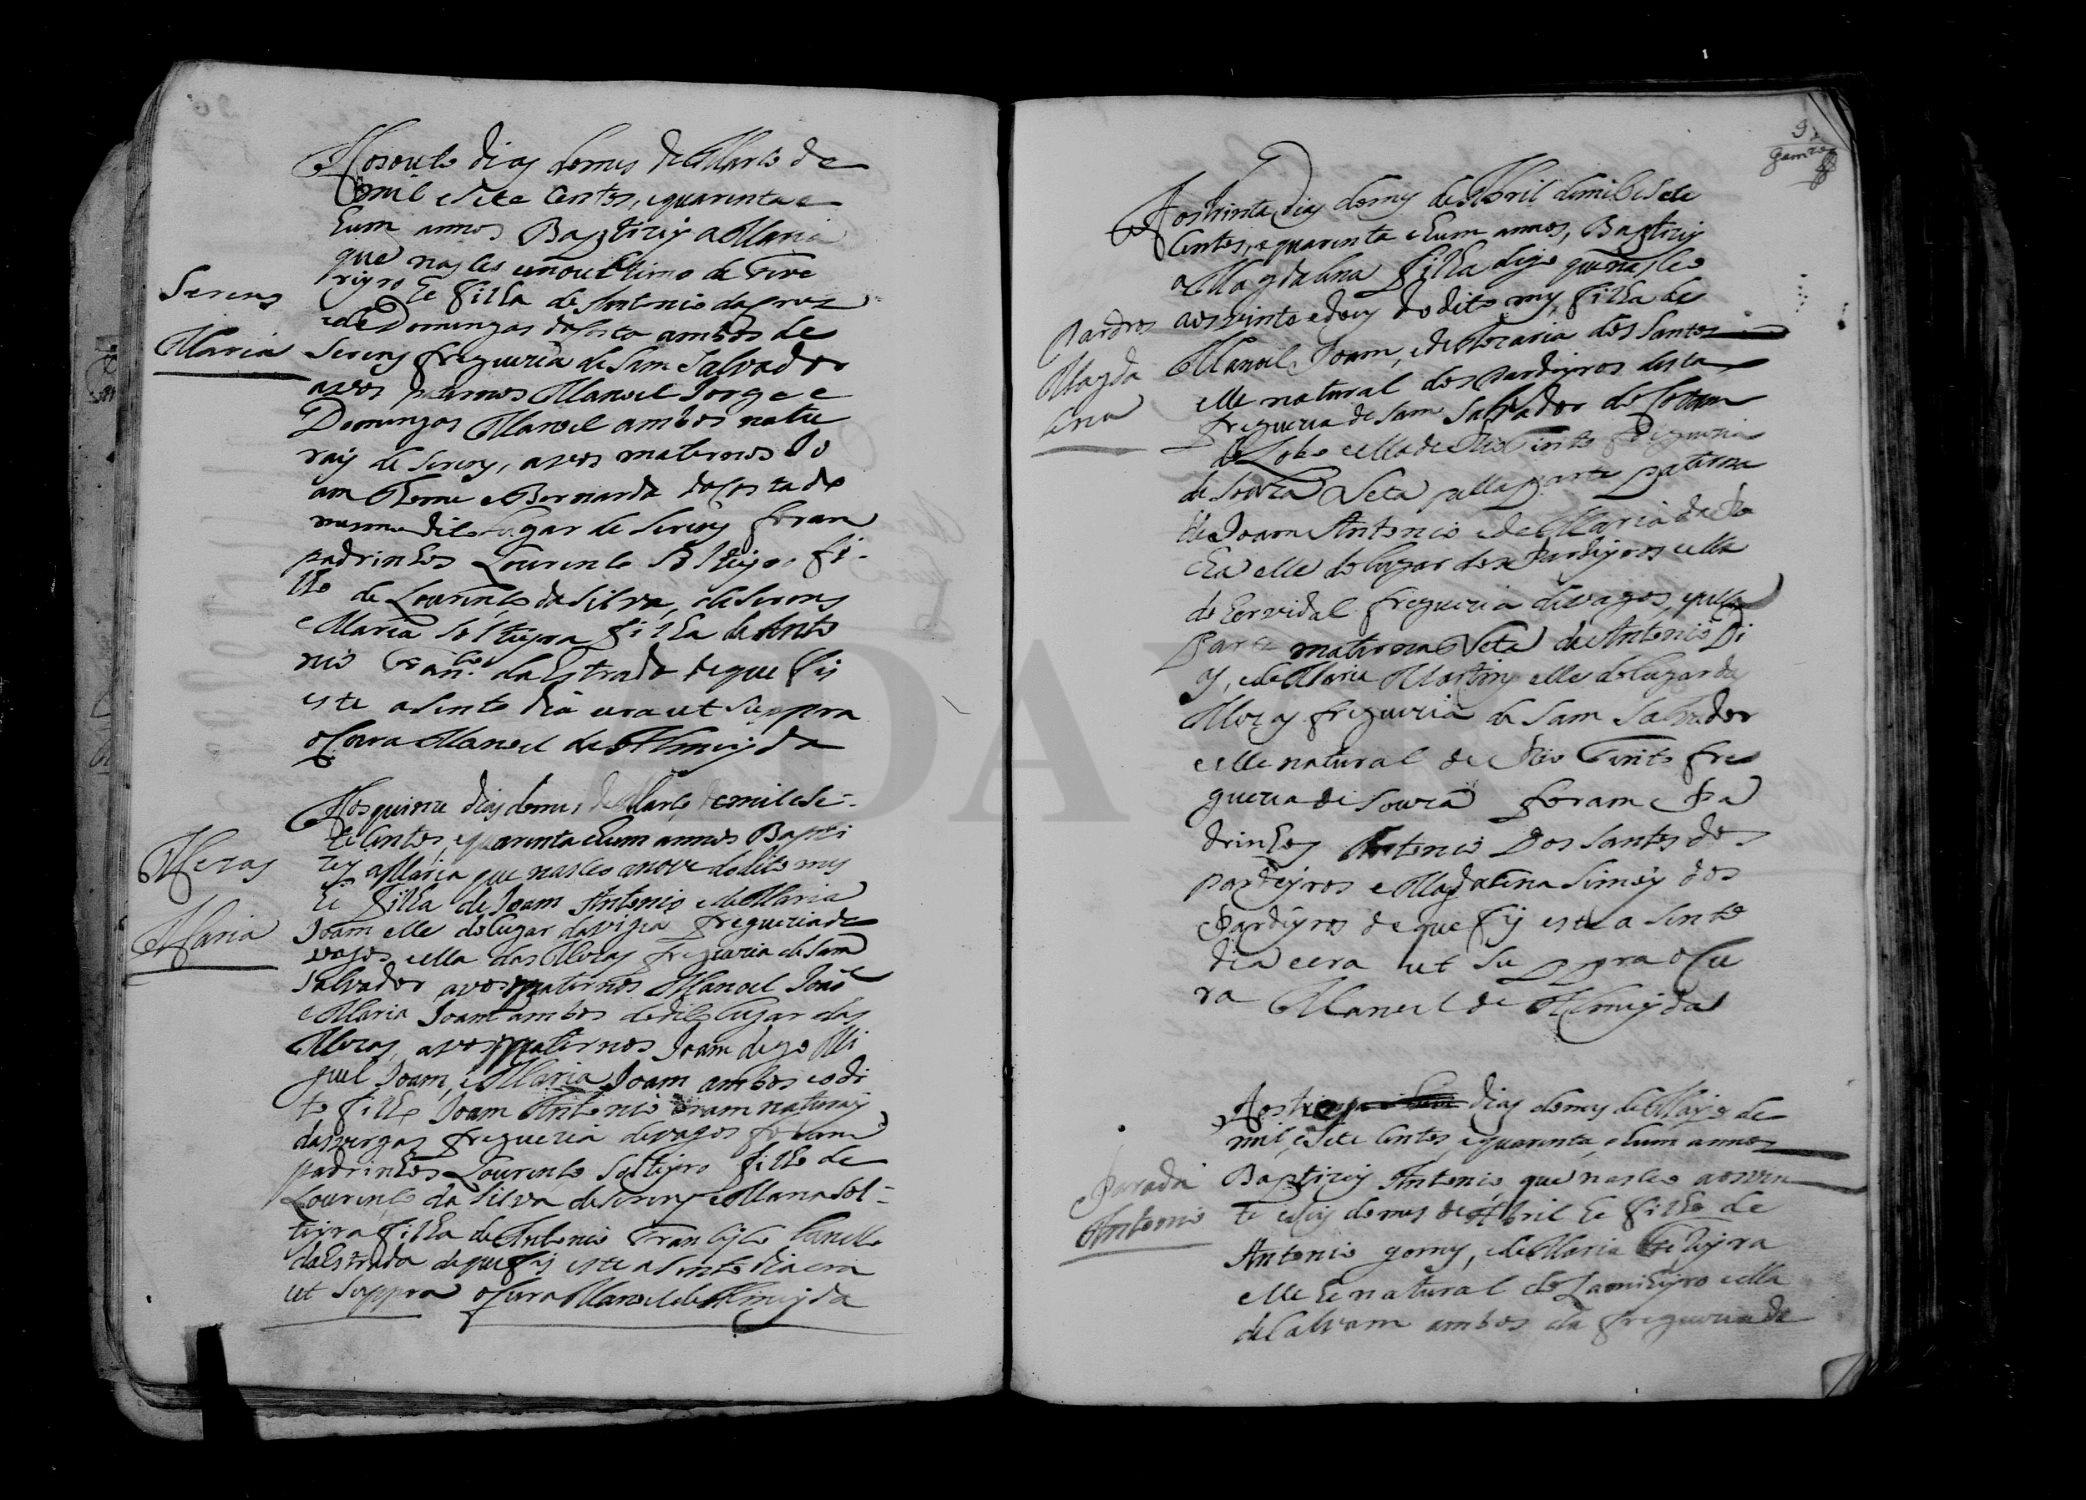 Aos outo dias do mes de Marso de
mil e Sete Centos, e quarenta e
hum annos Baptizey a Maria
que nasceo em o ultimo de Feve
reyro he filha de Antonio da Cruz
e de Domingas da Costa ambos de
Serens freguezia de Sam Salvador
avos paternos Manoel Jorge e
Domingas Manoel ambos natu
rais de Serens, avos maternos Jo
am Thome e Bernarda da Costa do
mesmo dito lugar de Serens foram
padrinhos Lourenço Solteyro fi-
lho de Lourenço da Silva, de Serens
e Maria Solteyra filha de Anto
nio Fran.co da Estrada de que fis
este asento dia era ut Suppra
o Cura Manoel de Almeyda
Serens
Maria
Aos quinze dias do mes de Marso de mil e Se-
te Centos, e quarenta e hum annos Bapti
zey a Maria que nasceo a nove do dito mes
he filha de Joam Antonio e de Maria
Joam elle do lugar da vigia freguezia de
vagos e ella das Mezas freguezia de Sam
Salvador avos paternos Manoel João
e Maria Joam ambos do dito lugar das
Mezas, avos maternos Joam digo Mi
guel Joam, e Maria Joam ambos e o di
to filho Joam Antonio eram naturais
das vergas freguezia de vagos foram
padrinhos Lourenço Solteyro filho de
Lourenço da Silva de Serens e Maria Sol-
teyra filha de Antonio Francisco
da Estrada de que fis este asento dia era
ut Suppra o Cura Manoel de Almeyda
Mezas
Maria
Aos trinta dias do mes de Abril de mil e Sete
Centos, e quarenta e hum annos, Baptizey
a Magdalena filha digo que nasceo
aos vinte e dous do dito mes, filha de
Manoel Joam, e de Mecaria dos Santos
elle natural dos Pardeyros desta
freguezia de Sam Salvador do Covam
do Lobo e ella de Rio Tinto freguezia
de Souza Neta pella parte paterna
de Joam Antonio e de Maria da Ro
cha elle do lugar dos Pardeyros e ella
do Corvidal freguezia de vagos, e pella
parte materna Neta de Antonio Di
as, e de Maria Martins elle do lugar das
Mezas freguezia de Sam Salvador
e ella natural de Rio Tinto fre
guezia de Souza foram Pa
drinhos Antonio Dos Santos dos
pardeyros e Magdalena Simois dos
Pardeyros de que fis este asento
dia e era ut Suppra o Cu
ra Manoel de Almeyda
Pardros
Magda
lena
Aos tres dias do mes de Mayo de
mil, e Sete Centos, e quarenta, e hum annos
Baptizey Antonio, que nasceo aos vin
te e seis do mes de Abril he filho de
Antonio gomes, e de Maria Ferreyra
elle he natural do Lamieyro e ella
de Calvam ambos da freguezia de
Parada
Antonio